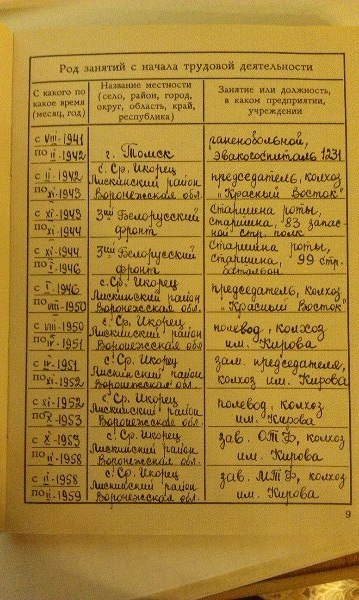 Род занятий с начала трудовой деятельности
С какого по
какое время
(месяц, год)
Название местности
(село, район, город,
округ, область, край,
республика)
Занятие или должность,
в каком предприятии,
учреждении
с VIII-1941
по II-1942
г. Томск
раненобольной,
эвакогоспиталь 1231
с II-1942
по XI-1943
с. Ср. Икорец
Лискинский район
Воронежская обл.
председатель, колхоз
"Красный Восток"
с XI-1943
по XI-1944
3ий Белорусский
фронт
Старшина роты,
старшина, 83 запас
ной стр. полк
с XI-1944
по I-1946
3ий Белорусский
фронт
Старшина роты,
старшина, 99 стр.
батальон
с I-1946
по VIII-1950
с. Ср. Икорец
Лискинский район
Воронежская обл.
председатель, колхоз
"Красный Восток"
с VIII-1950
по 1951
с. Ср. Икорец
Лискинский район
Воронежская обл.
полевод, колхоз
им. Кирова
с 1951
по XI-1952
с. Ср. Икорец
Лискинский район
Воронежская обл.
зам. председателя,
колхоз им. Кирова
с XI-1952
по X-1953
с. Ср. Икорец
Лискинский район
Воронежская обл.
полевод, колхоз
им. Кирова
с X-1953
по II-1958
с. Ср. Икорец
Лискинский район
Воронежская обл.
зав. ОТФ, колхоз
им. Кирова
с II-1958
по II-1959
с. Ср. Икорец
Лискинский район
Воронежская обл.
зав. МТФ, колхоз
им. Кирова
9